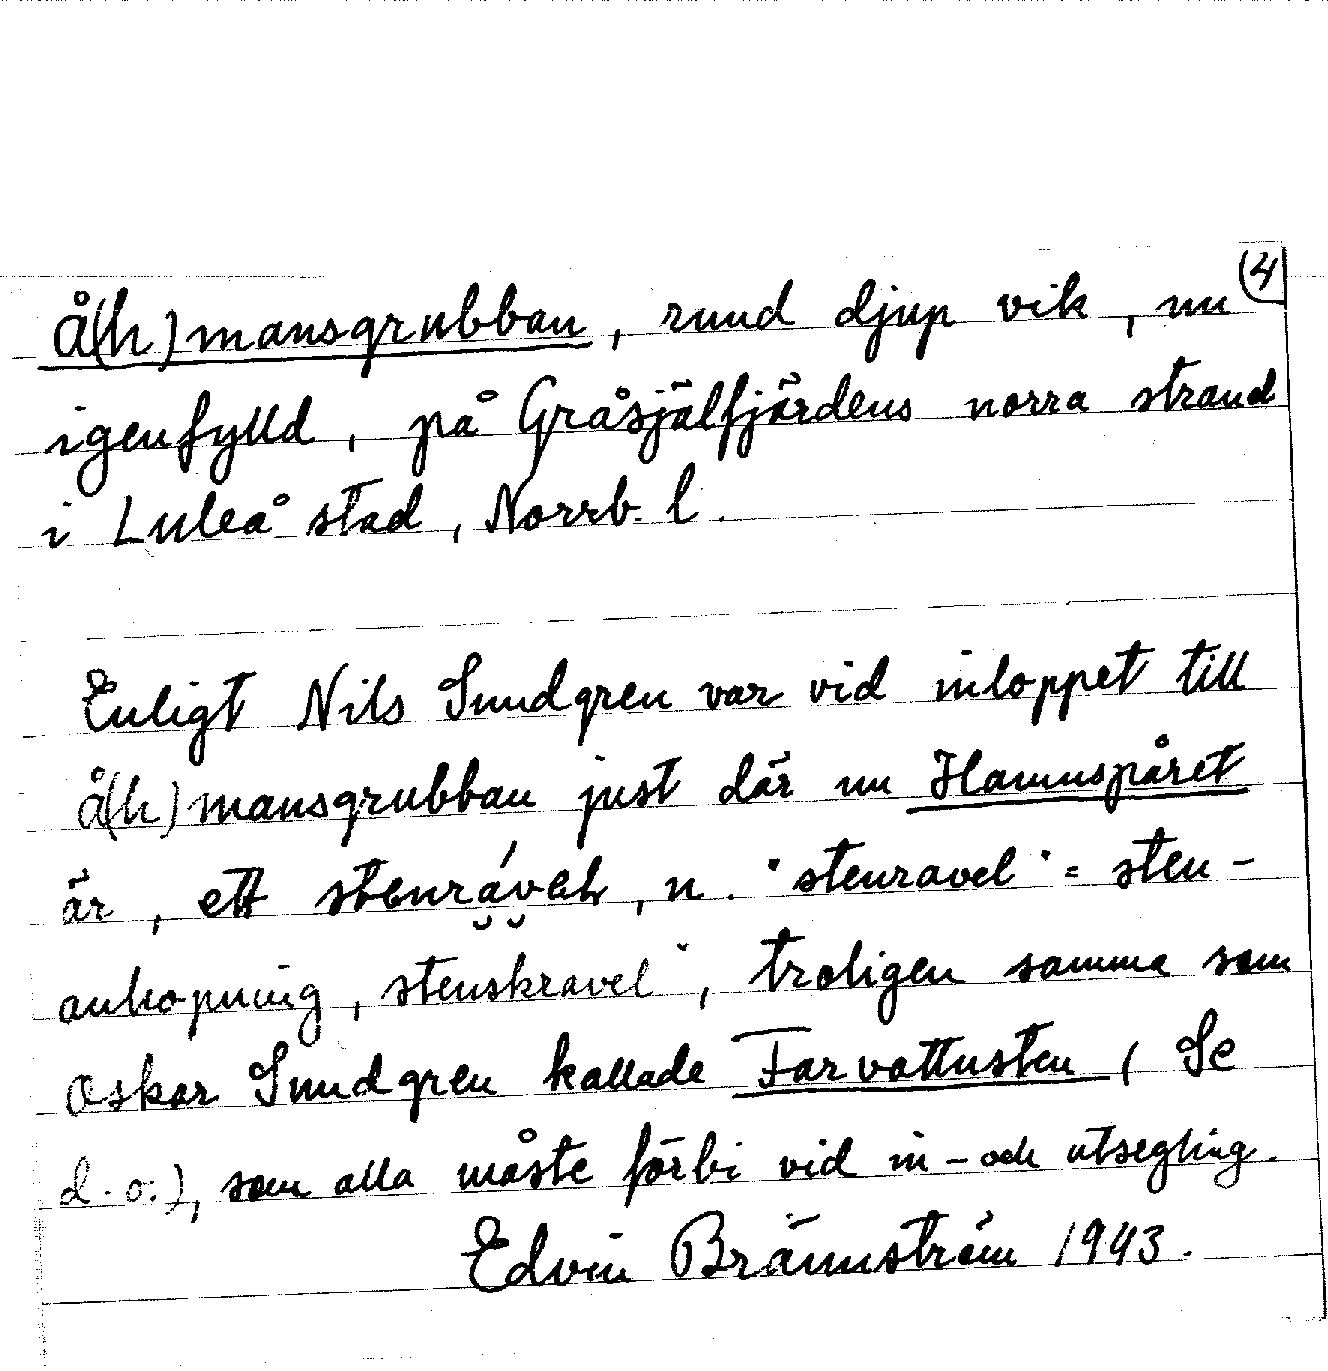 4
å(h)mansgrubban, rund djup vik, nu
igenfylld, på Gråsjälfjärdens norra strand
i Luleå stad, Norrb. l.
Enligt Nils Sundgren var vid inloppet till
å(h)mansgrubban just där nu Hamnspåret
är, ett stenrável, n. "stenravel" = sten-
anhopning, stenskravel", troligen samma som
Oskar Sundgren kallade Farvattusten (Se
d.o.), som alla måste förbi vid in- och utsegling.
Edvin Brännström 1943.